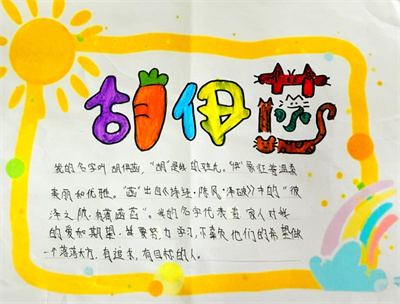 胡伊菡
我的名字叫胡伊菡，“胡”是我的姓氏。“伊”象征着温柔
美丽和优雅。“菡”出自《诗经·陈风·泽陂》中的“彼
泽之陂，有蒲菡萏”。我的名字代表着家人对我
的爱和期望，我要努力学习，不辜负他们的希望做
一个落落大方，有追求，有目标的人。